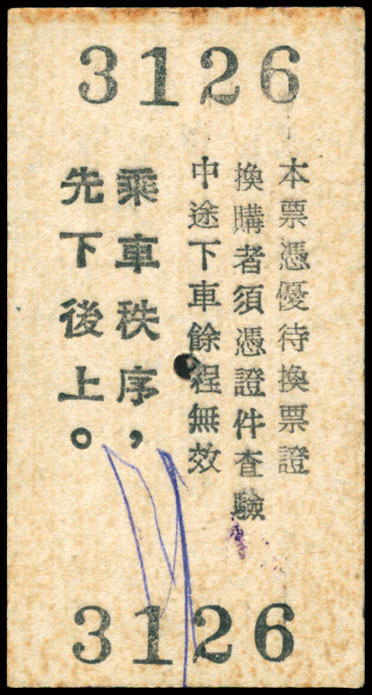 3126
本票憑優待換票證
換購者須憑證件查驗
中途下車餘程無效
乘車秩序，
先下後上。
3126